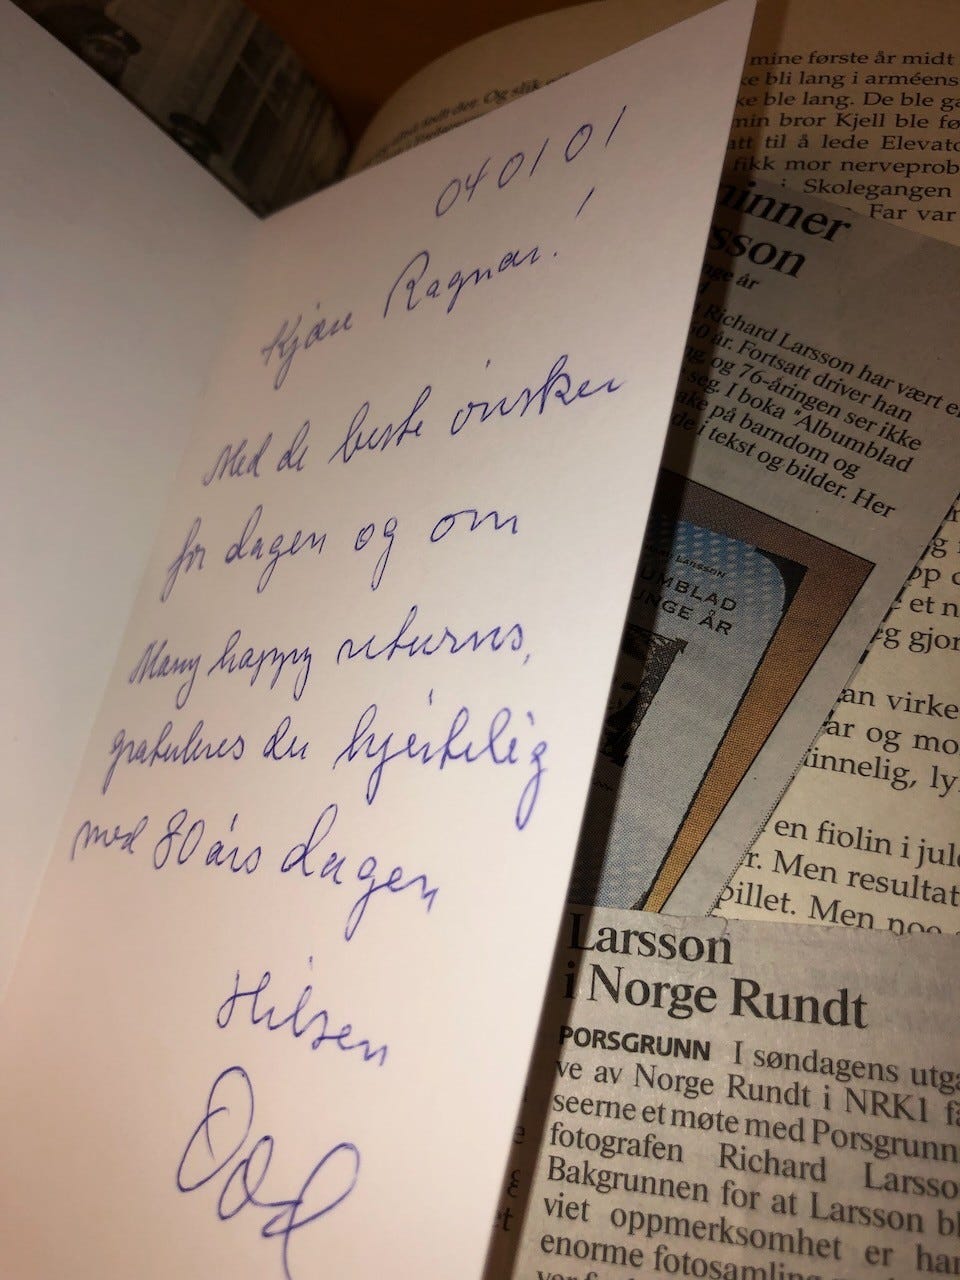 04 01 01
Kjære Ragnar!
Med de beste ønsker
for dagen og om
Many happy returns,
gratuleres du hjertelig
med 80 års dagen
Hilsen
Odd
født der. Og slik
mine første år midt
ke bli lang i arméens
ke ble lang. De ble ga
min bror Kjell ble fø
att til å lede Elevato
fikk mor nerveprob
i Skolegangen
Far var
minner
sson
nge år
Richard Larsson har vært e
50 år. Fortsatt driver han
og 76-åringen ser ikke
seg. I boka "Albumblad
ake på barndom og
de i tekst og bilder. Her
LARSSON
UMBLAD
UNGE ÅR
pp o
et n
eg gjor
an virke
ar og mo
innelig, ly
en fiolin i jul
r. Men resultat
pillet. Men noe
Larsson
i Norge Rundt
PORSGRUNN I søndagens utga
ve av Norge Rundt i NRK1 få
seerne et møte med Porsgrunn
fotografen Richard Larsso
Bakgrunnen for at Larsson bl
viet oppmerksomhet er han
enorme fotosamling